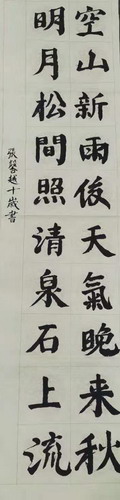 空山新雨後天氣晚来秋
明月松間照清泉石上流
張馨越十歲書